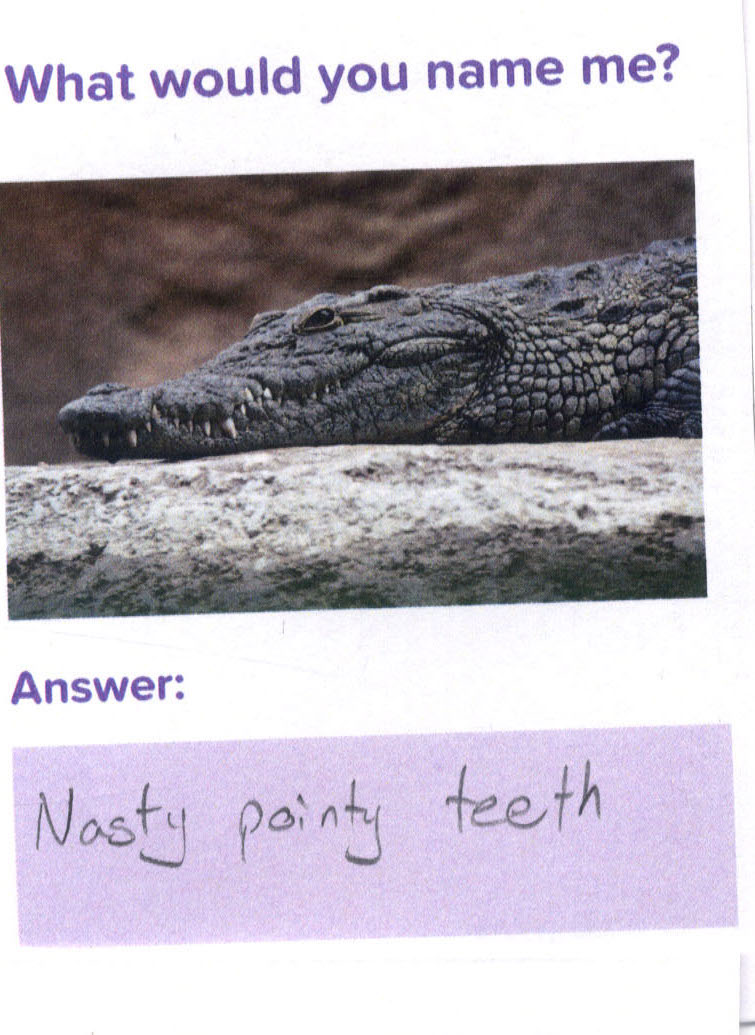 What would you name me?
Answer:
Nasty pointy teeth